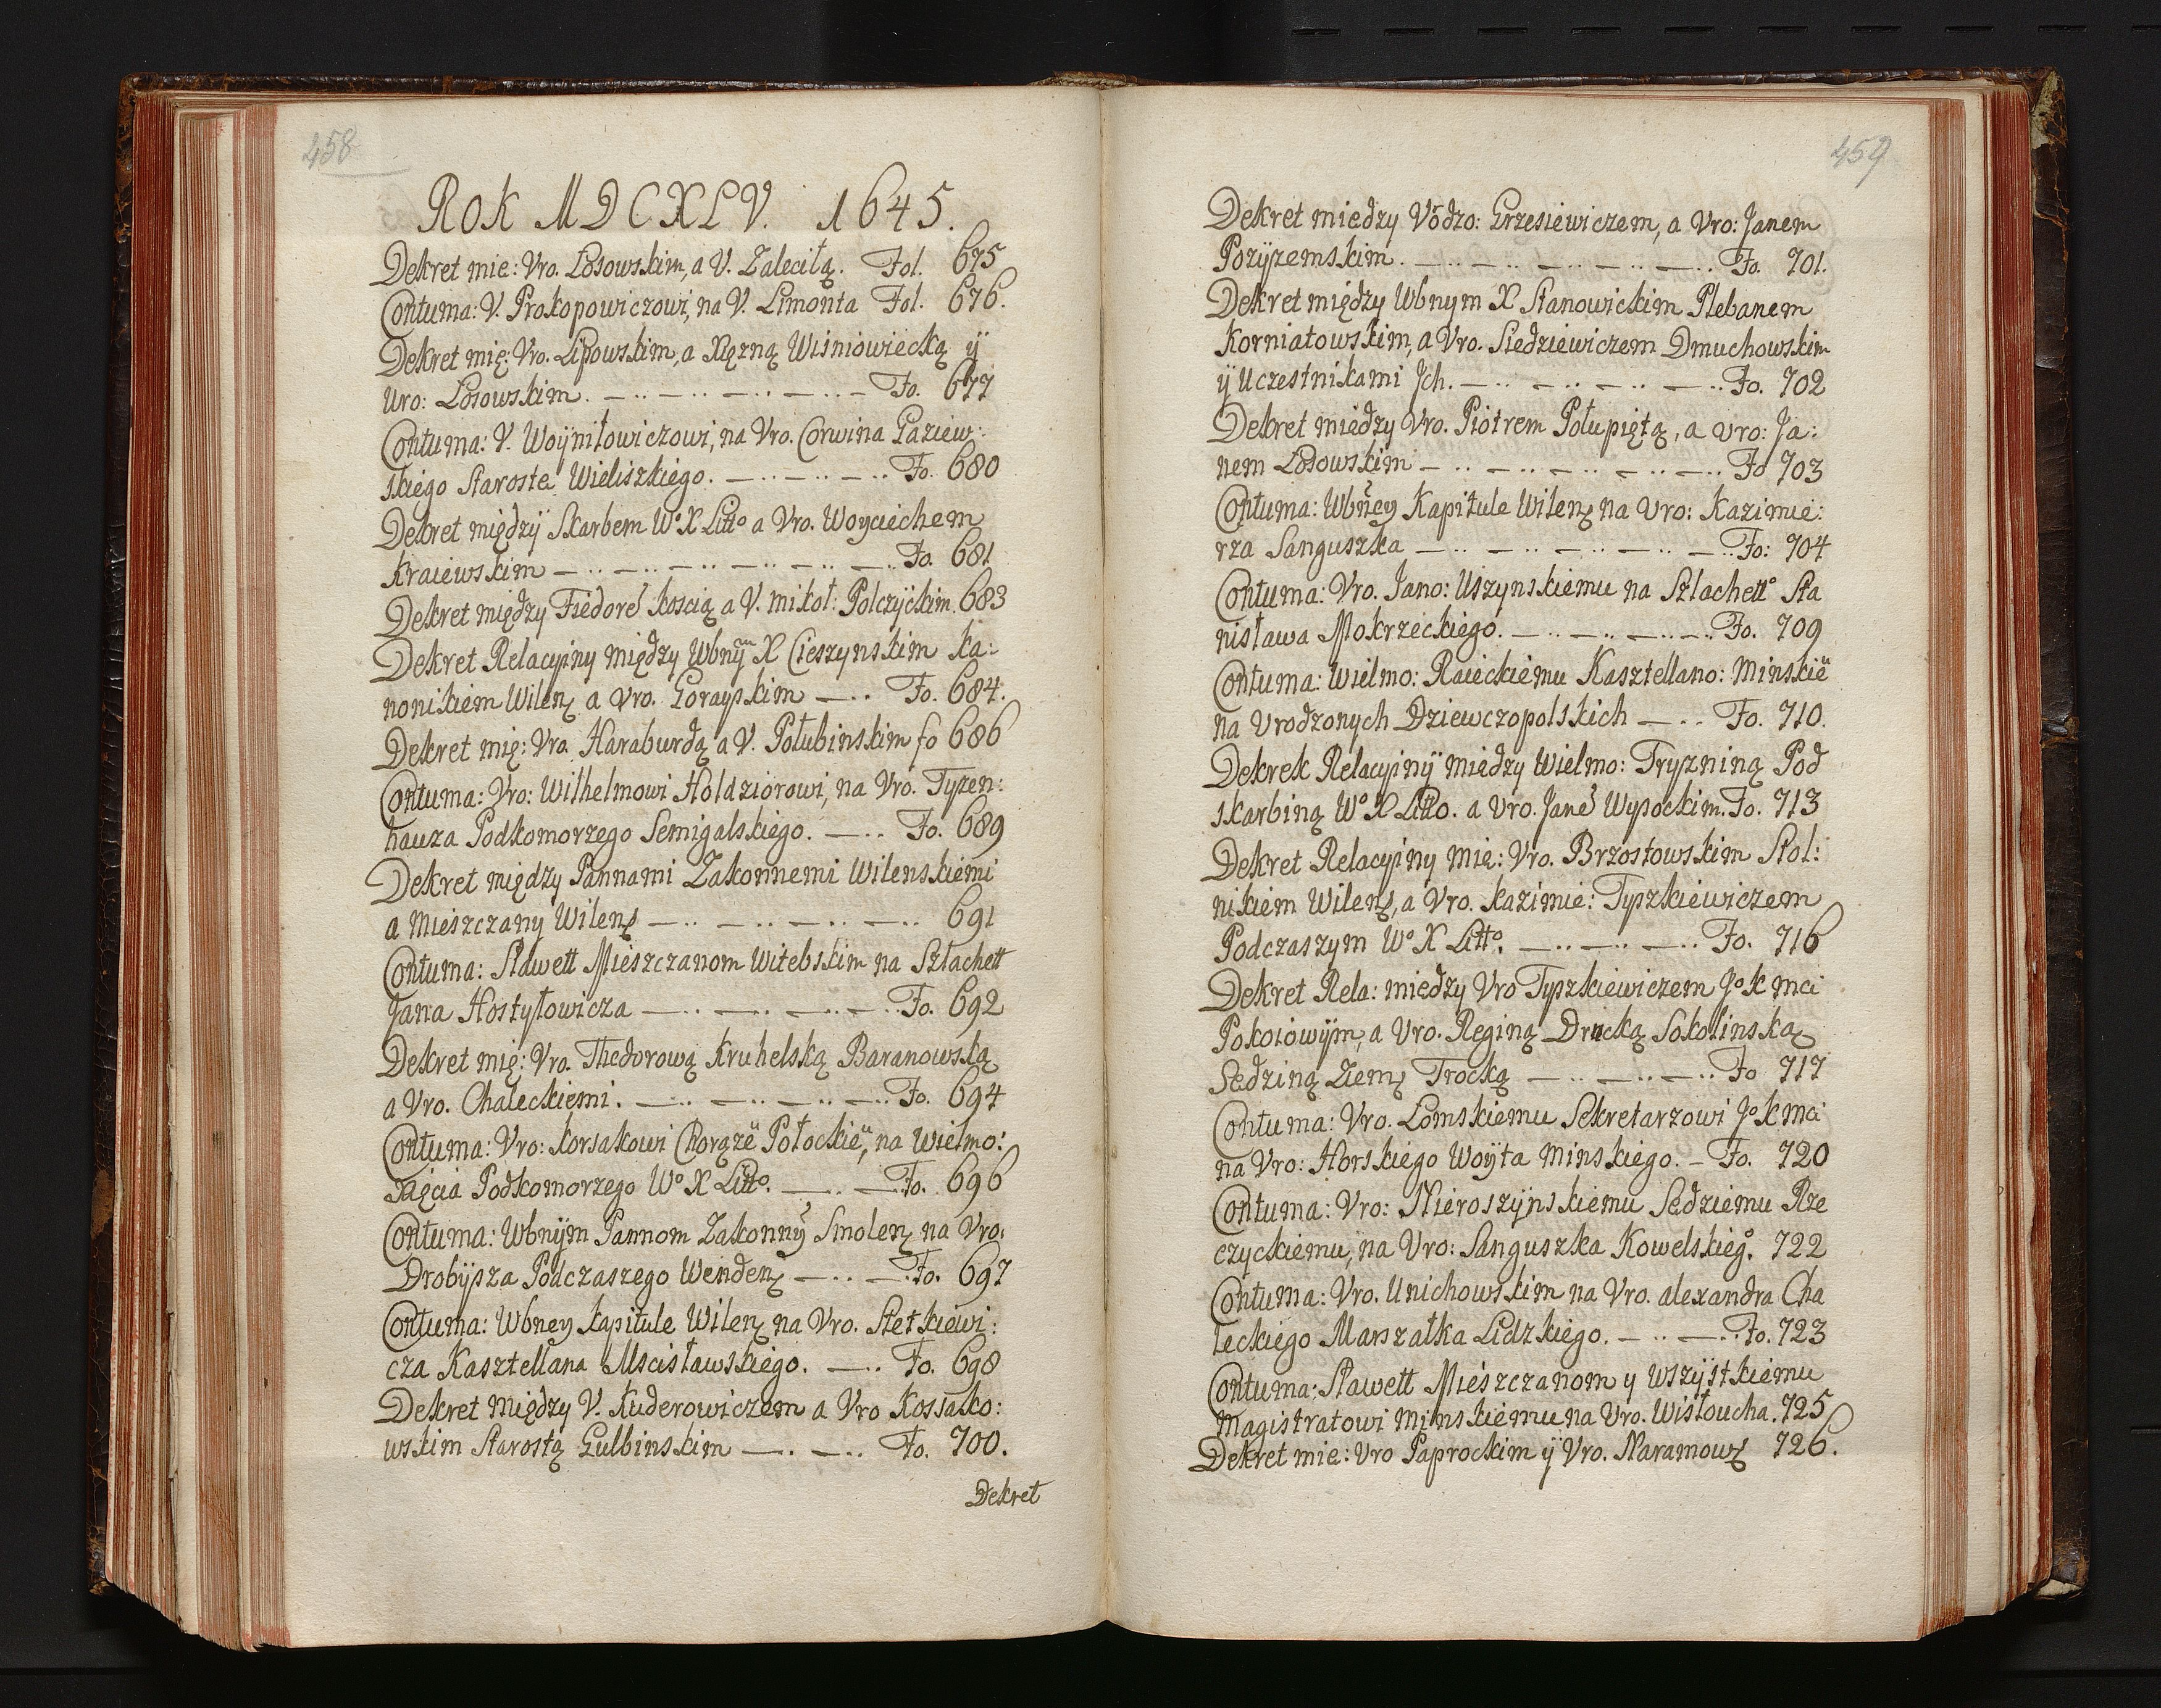 458
ROK MDCXLV. 1645.
Dekret mie: Vro. Łosowskim, a V. Zalecitą. Fol. 675
Contuma: V. Prokopowiczowi, na V. Limonta Fol. 676.
Dekret mię: Vro. Lipowskim, a Xęzną Wisniowiecką ÿ
Uro: Łosowskim. — ·· — ·· — ·· — ·· — Fo. 677
Contuma: V. Woÿniłowiczowi, na Vro. Corwina Gąsiew:
skiego Staroste Wieliszkiego. — ·· — ·· — ·· Fo. 680
Dekret międzÿ Skarbem Wº X Littº a Vro. Woyciechem
Kraiewskim — ·· — ·· — ·· — ·· — ·· — Fo. 681
Dekret między Fiedore Koscią a V. mikoł: Połczÿckim. 683
Dekret Relacyiny między Wbnÿm X Cieszynskim Ka:
nonikiem Wilen a Vro. Gorayskim — ·· Fo. 684.
Dekret mię: Vro. Haraburdą a V. Połubinskim fo 686
Contuma: Vro: Wilhelmowi Holdziorowi, na Vro. Tyzen:
hauza Podkomorzego Semigalskiego. — ·· Fo. 689
Dekret między Pannami Zakonnemi Wilenskiemi
a Mieszczany Wilen — ·· — ·· — ·· — ·· 691
Contuma: Sławett Mieszczanom Witebskim na Szlachett
Jana Hostyłowicza — ·· — ·· — ·· — ·· Fo. 692
Dekret mię: Vro. Thedorową Kruhelską Baranowską
a Vro. Chaleckiemi. — ·· — ·· — ·· — ·· Fo. 694
Contuma: Vro: Korsakowi Chorąze Połockie, na Wielmo:
Paęcia Podkomorzego Wº X Littº. — ·· — Fo. 696
Contuma: Wbnÿm Pannom Zakonny Smolen na Vro.
Drobÿsza Podczaszego Wenden — ·· — Fo. 697
Contuma: Wbney Kapitule Wilen na Vro. Stetkiewi:
cza Kasztellana Mscisławskiego. — ·· Fo. 698
Dekret między V. Kuderowiczem a Vro Kossako:
wskim Starostą Gulbinskim — ·· — ·· Fo. 700.
Dekret
459
Dekret miedzy Vŏdzo: Grzesiewiczem, a Vro: Janem
Pozÿzemskim. — ·· — ·· — ·· — ·· — ·· Fo. 701.
Dekret między Wbnym X Stanowickim Plebanem
Korniatowskim, a Vro. Siedziewiczem Dmuchowskim
ÿ Uczestnikami Jch. — ·· — ·· — ·· — ·· Fo. 702
Dekret miedzy Vro. Piotrem Połupiętą, a Vro: Ja:
nem Łosowskim — ·· — ·· — ·· — ·· — ·· Fo 703
Contuma: Wbney Kapitule Wilen na Vro: Kazimie:
rza Sanguszka — ·· — ·· — ·· — ·· — ·· Fo: 704
Contuma: Vro. Jano: Uszynskiemu na Szlachettº Sta
nisława Mokrzeckiego. — ·· — ·· — ·· — Fo. 709
Contuma: Wielmo: Raieckiemu Kasztellano: Minskie
na Vrodzonych Dziewczopolskich — ·· Fo. 710.
Dekrek Relacyinÿ miedzy Wielmo: Tryzniną Pod
skarbiną Wº X Litto. a Vro. Jane Wysockim. Fo. 713
Dekret Relacyiny mię: Vro. Brzostowskim Stol:
nikiem Wilen, a Vro. Kazimie: Tyszkiewiczem
Podczaszym Wº X Littº. — ·· — ·· — ·· Fo. 716
Dekret Rela: miedzy Vro Tyszkiewiczem Jº K mci
Pokoiowÿm, a Vro. Reginą Drucką Sokolinską
Sedziną Ziem Trocką — ·· — ·· — ·· Fo 717
Contuma: Vro. Lomskiemu Sekretarzowi Jº K mci
na Vro: Horskiego Woÿta Minskiego. — Fo. 720
Contuma: Vro: Nieroszÿnskiemu Sedziemu Rze
czyckiemu, na Vro: Sanguszka Kowelskiegº. 722
Contuma: Vro. Unichowskim na Vro. alexandra Cha
leckiego Marszałka Lidzkiego. — ·· — ·· Fo. 723
Contuma: Sławett Mieszczanom y Wszÿstkiemu
Magistratowi Minskiemu na Vro. Wisłoucha. 725
Dekret mie: Vro Paprockim ÿ Vro. Naramow 726.